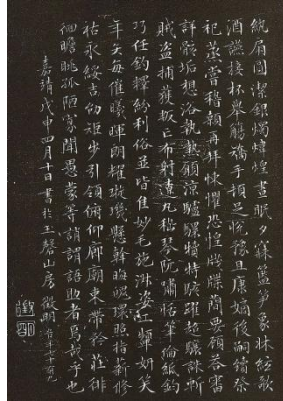 紈扇圓潔銀燭煒煌晝眠夕寐籃筍象牀絃歌
酒讌接杯舉觴矯手頓足悅豫且康嫡後嗣續祭
祀蒸嘗稽顙再拜悚懼恐惶牋牒簡要顧答審
詳骸垢想浴執熱願涼驢騾犢特駭躍超驤誅斬
賊盜捕獲叛亡布射遼丸嵇琴阮嘯恬筆倫紙鈞
巧任釣釋紛利俗並皆佳妙毛施淑姿工顰妍笑
年矢每催曦暉朗耀璇璣懸斡晦魄環照指薪修
祜永綏吉劭矩步引領俯仰廊廟束帶矜莊徘
徊瞻眺孤陋寡聞愚蒙等誚謂語助者焉哉乎也
嘉靖戊申四月十日書於玉磬山房 徵明 時年七十有九
徵明